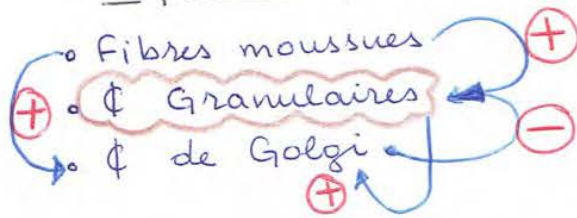 • Fibres moussues +
+ • ₵ Granulaires
• ₵ de Golgi −
+